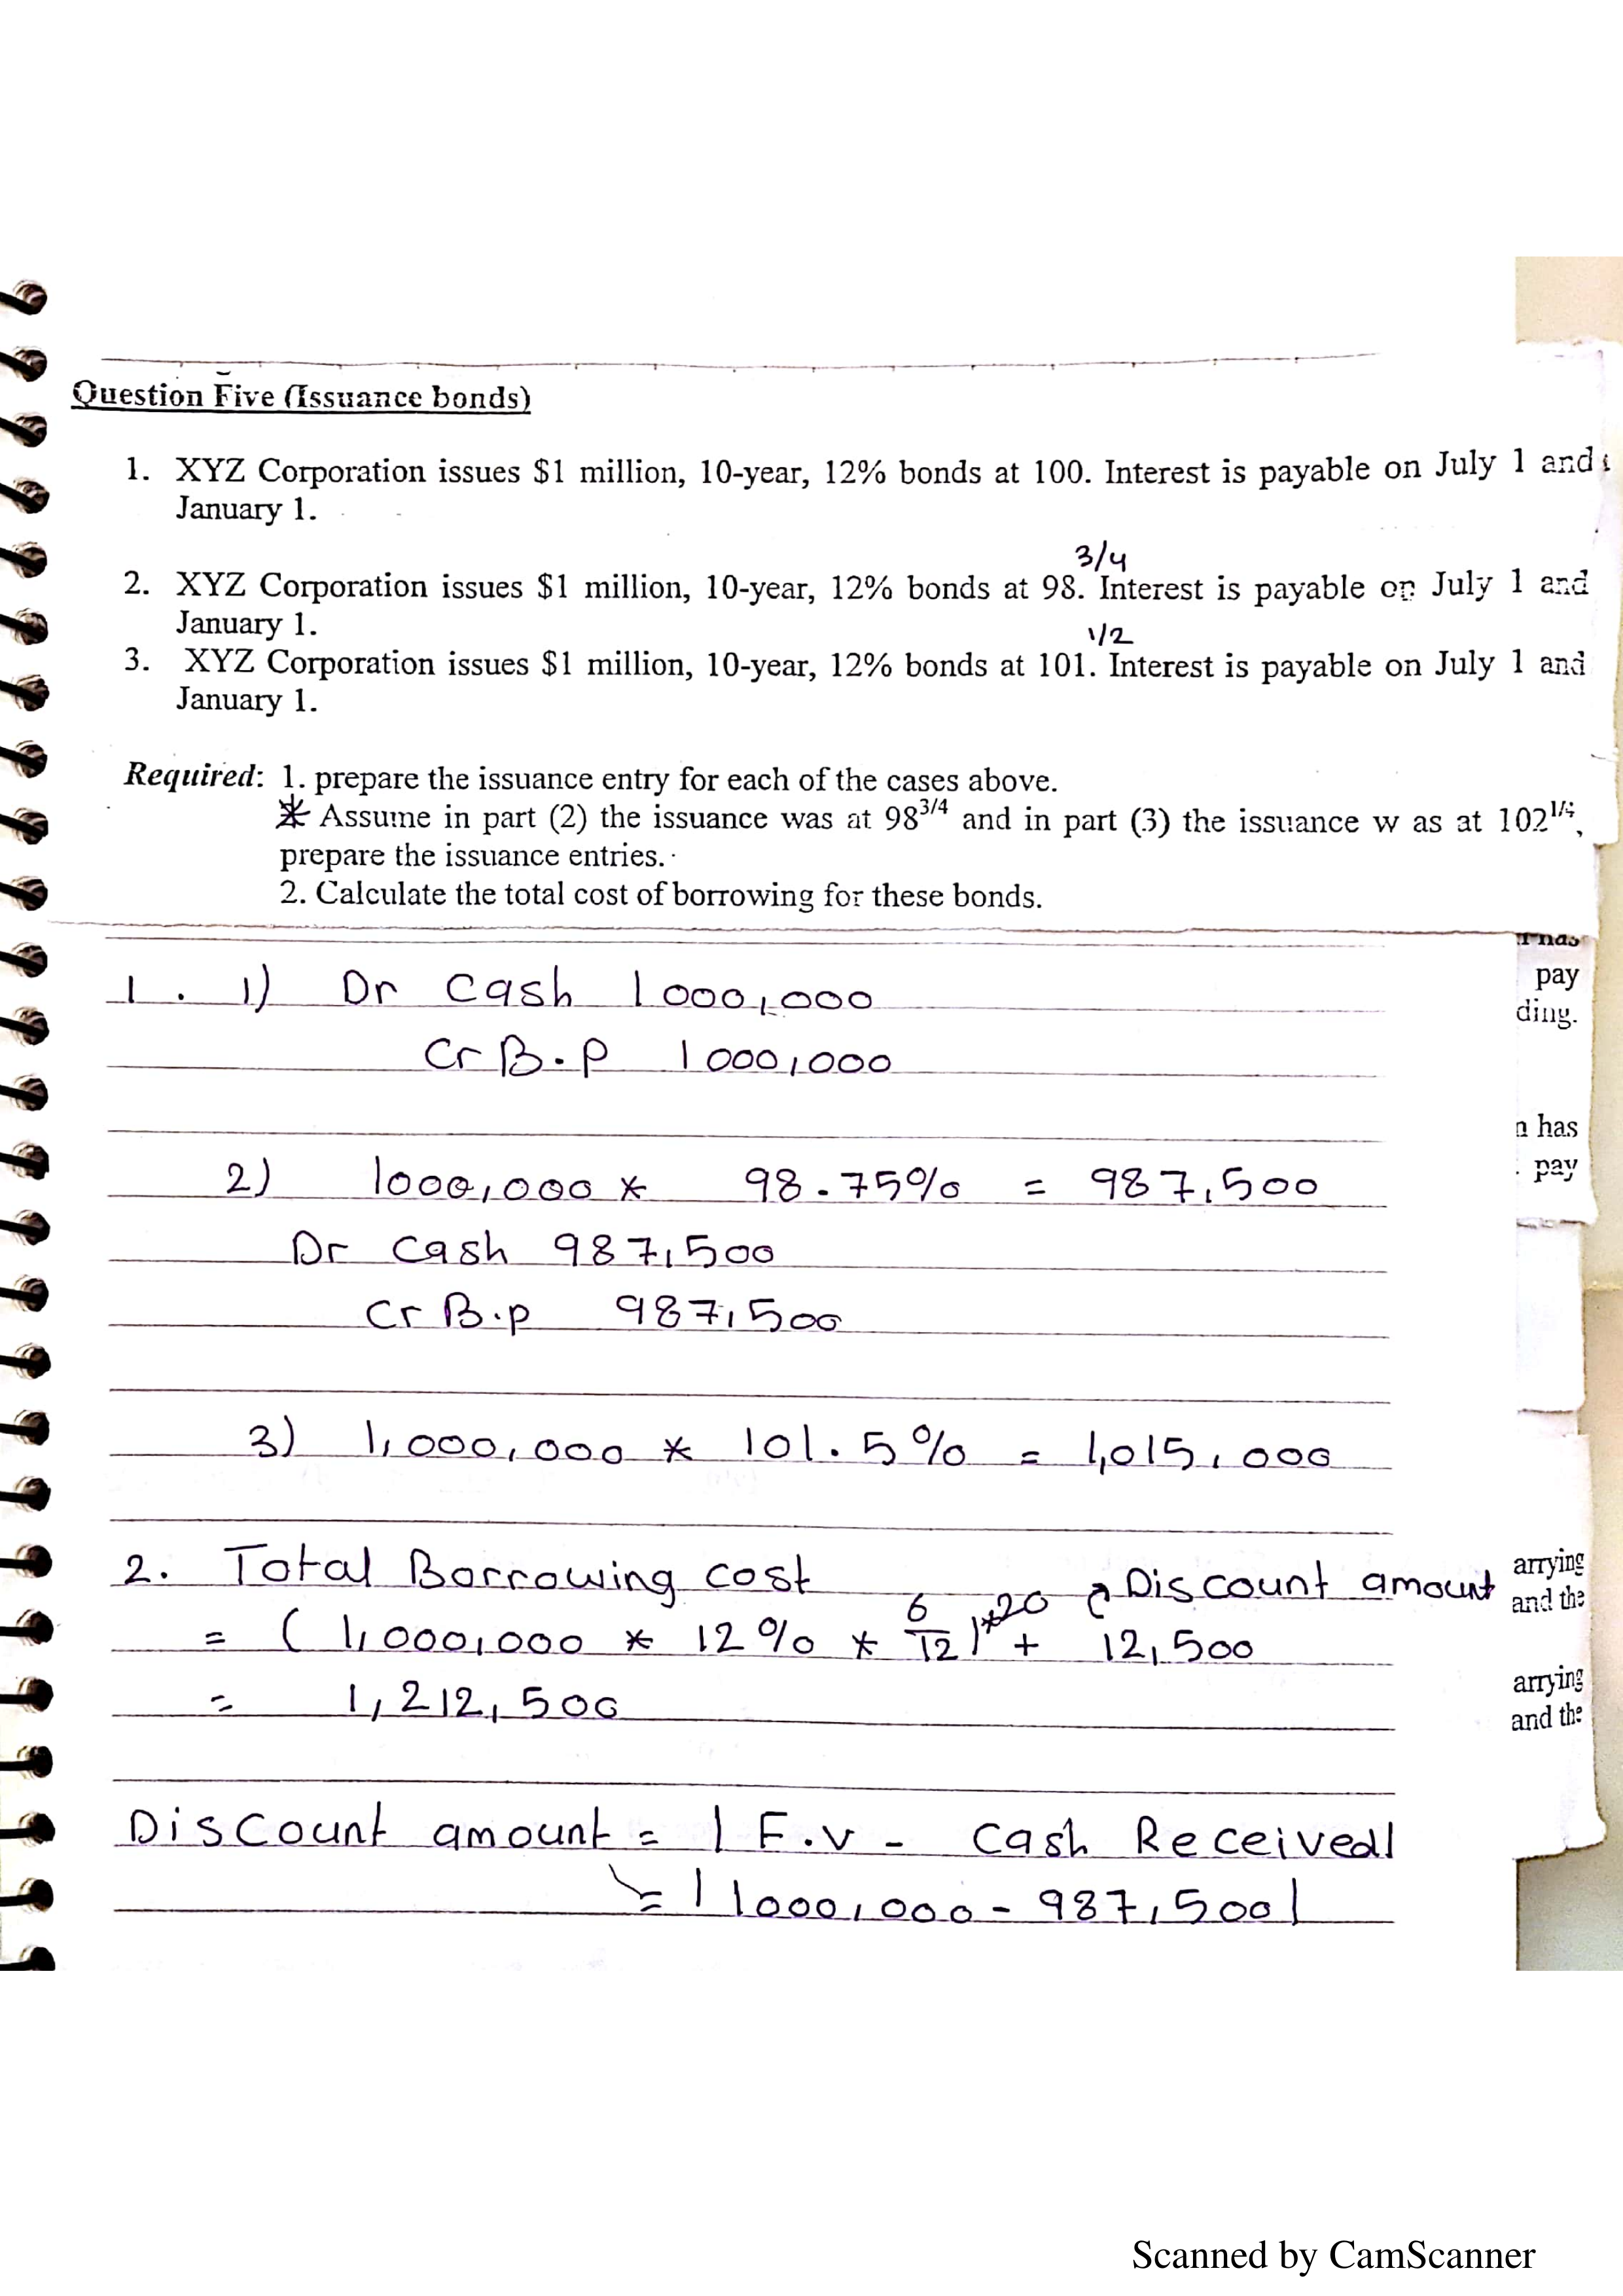 Question Five (Issuance bonds)
1. XYZ Corporation issues $1 million, 10-year, 12% bonds at 100. Interest is payable on July 1 and
January 1.
3/4
2. XYZ Corporation issues $1 million, 10-year, 12% bonds at 98. Interest is payable on July 1 and
January 1.
1/2
3. XYZ Corporation issues $1 million, 10-year, 12% bonds at 101. Interest is payable on July 1 and
January 1.
Required: 1. prepare the issuance entry for each of the cases above.
* Assume in part (2) the issuance was at 98 3/4 and in part (3) the issuance w as at 102
prepare the issuance entries.
2. Calculate the total cost of borrowing for these bonds.
pay
ding.
1. 1) Dr Cash 1000,000
Cr B.P 1000,000
has
pay
2) 1000,000 * 98.75% = 987,500
Dr Cash 987,500
Cr B.p 987,500
3) 1,000,000 * 101.5% = 1,015,000
2. Total Borrowing cost
Discount amount
arrying
and the
= (1,000,000 * 12% * 6/12)*20 + 12,500
= 1,212,500
arrying
and the
Discount amount = | F.v - Cash Received|
= | 1000,000 - 987,500|
Scanned by CamScanner